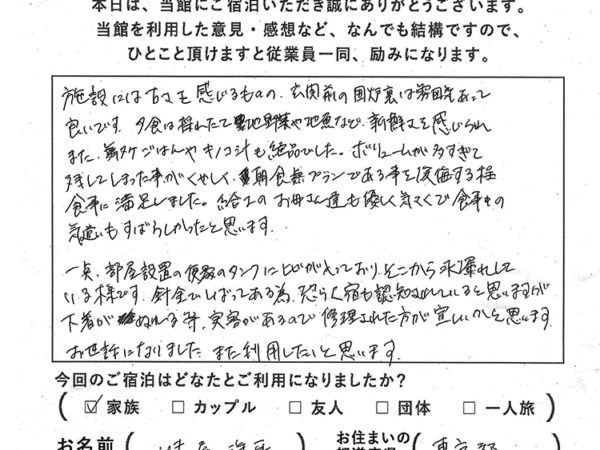 本日は、当館にご宿泊いただき誠にありがとうございます。
当館を利用した意見・感想など、なんでも結構ですので、
ひとこと頂けますと従業員一同、励みになります。
施設には古さを感じるものの、玄関前の囲炉裏は雰囲気あって
良いです。夕食は採れたて地野菜や地魚など、新鮮さを感じられ
また、舞茸ごはんやキノコ汁も絶品でした。ボリュームが多すぎて
残してしまった事がくやしく、期食無プランである事を後悔する程
食事に満足しました。給仕のお母さん達も優しく気さくで食事もの
気遣いもすばらしかったと思います。
一点、部屋設置の便器のタンクにヒビが入っており、そこから水漏れして
いる様です。針金でしばってある為、恐らく宿も認知されていると思いますが
下着がぬれる等、実害があるので修理された方が宜しいかと思います。
お世話になりました。また利用したいと思います。
今回のご宿泊はどなたとご利用になりましたか?
( ☑ 家族 □ カップル □ 友人 □ 団体 □ 一人旅 )
お名前 ( お住まいの ( 東京都